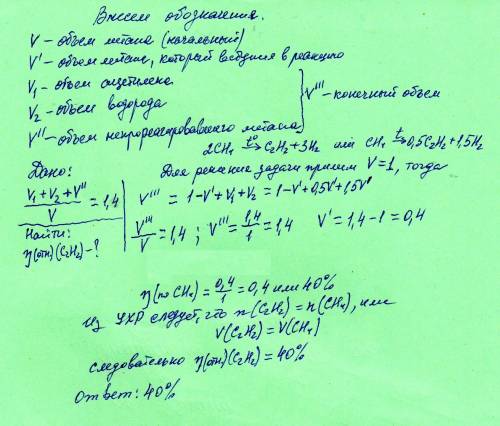 Введем обозначения.
V - объем метана (начальный)
V' - объем метана, который вступил в реакцию
V₁ - объем ацетилена
V₂ - объем водорода
V'' - объем непрореагировавшего метана
} V''' - конечный объем
2CH₄ →t° C₂H₂+3H₂ или CH₄ →t 0,5C₂H₂+1,5H₂
Дано:
(V₁+V₂+V'')/V = 1,4
Найти:
η(отн)(C₂H₂) - ?
Для решения задачи примем V=1, тогда
V''' = 1-V'+V₁+V₂ = 1-V'+0,5V'+1,5V'
V'''/V = 1,4 ; V''' = 1,4/1 = 1,4 V' = 1,4-1 = 0,4
η(по CH₄) = 0,4/1 = 0,4 или 40%
Из УХР следует, что n(C₂H₂) = n(CH₄), или
V(C₂H₂) = V(CH₄)
следовательно η(отн)(C₂H₂) = 40%
Ответ: 40%